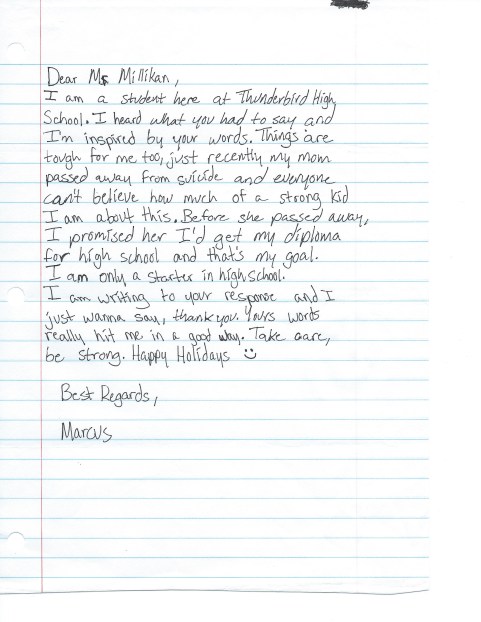 Dear Ms Millikan,
I am a student here at Thunderbird High
School. I heard what you had to say and
I'm inspired by your words. Things are
tough for me too, just recently my mom
passed away from suicide and everyone
can't believe how much of a strong kid
I am about this. Before she passed away,
I promised her I'd get my diploma
for high school and that's my goal.
I am only a starter in highschool.
I am writing to your response and I
just wanna say, thank you. Yours words
really hit me in a good way. Take care,
be strong. Happy Holidays
Best Regards,
Marcus